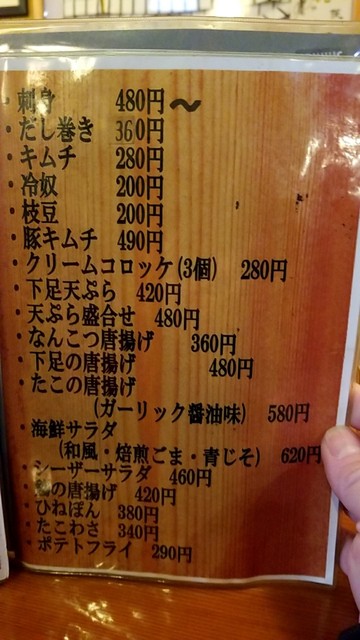 ・刺身 480円〜
・だし巻き 360円
・キムチ 280円
・冷奴 200円
・枝豆 200円
・豚キムチ 490円
・クリームコロッケ(3個) 280円
・下足天ぷら 420円
・天ぷら盛合せ 480円
・なんこつ唐揚げ 360円
・下足の唐揚げ 480円
・たこの唐揚げ
(ガーリック醤油味) 580円
・海鮮サラダ
(和風・焙煎ごま・青じそ) 620円
・シーザーサラダ 460円
の唐揚げ 420円
・ひねぽん 380円
・たこわさ 340円
・ポテトフライ 290円